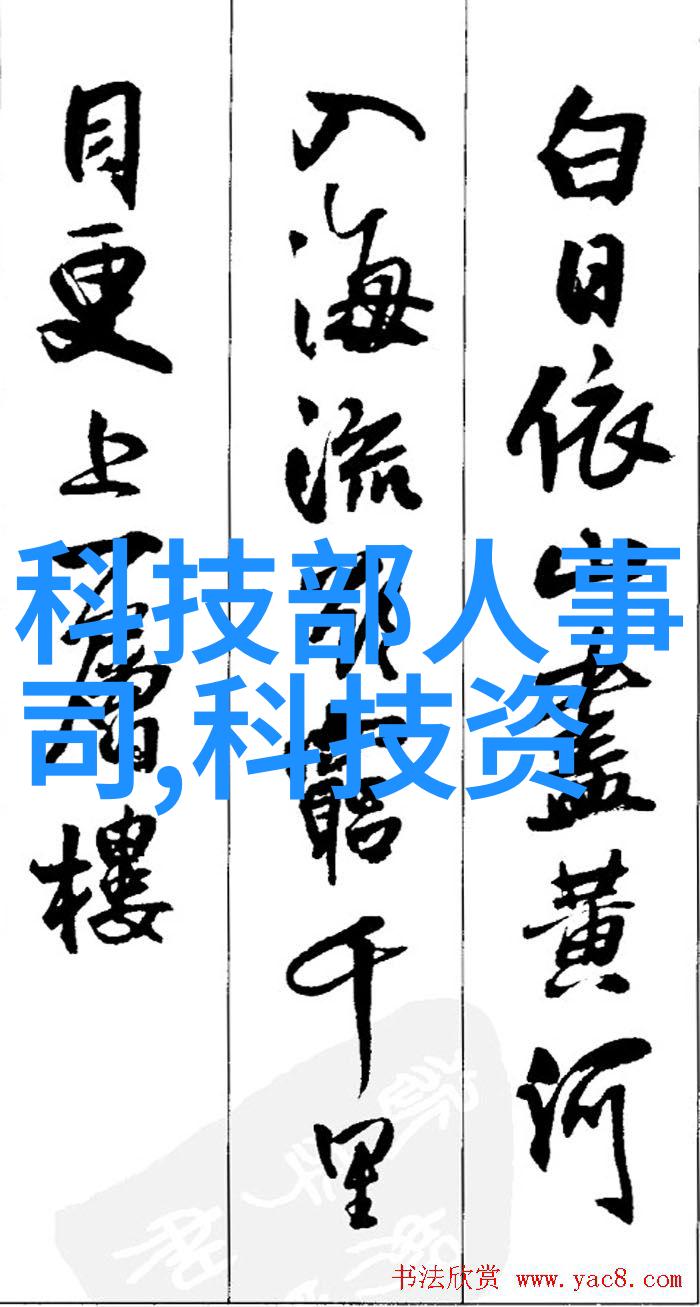 白日依山盡黄河
入海流欲窮千里
目更上一層樓
科技部人事
司,科技资
书法欣赏 www.yac8.com